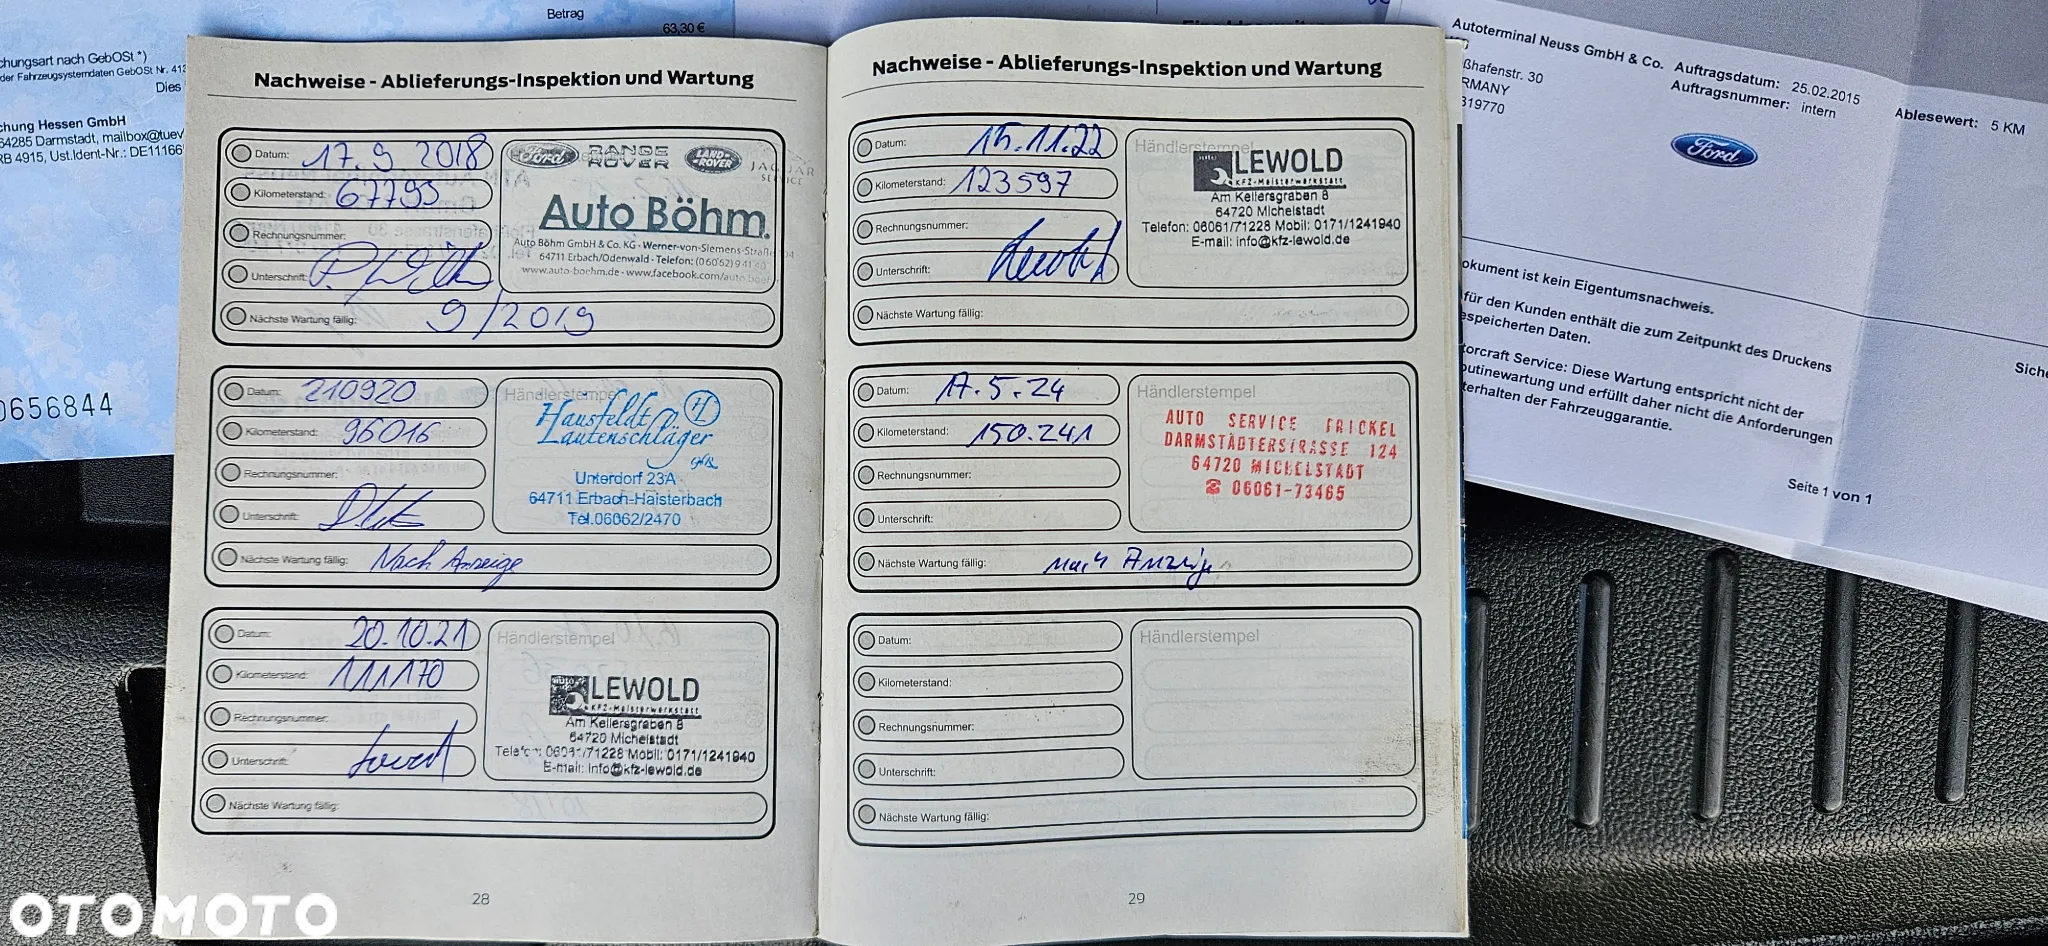 Betrag
63,30 €
chungsart nach GebOSt *)
der Fahrzeugsystemdaten GebOSt Nr. 413
Dies
chung Hessen GmbH
64285 Darmstadt, mailbox@tuev
RB 4915, Ust.Ident-Nr.: DE11166
0656844
Nachweise - Ablieferungs-Inspektion und Wartung
Datum: 17.9 2018
Kilometerstand: 67793
Rechnungsnummer:
Unterschrift:
Nächste Wartung fällig: 9/2019
Ford RANGE ROVER LAND-ROVER JAGUAR SERVICE
Auto Böhm.
Auto Böhm GmbH & Co. KG · Werner-von-Siemens-Straße
64711 Erbach/Odenwald · Telefon: (06062) 94140
www.auto-boehm.de - www.facebook.com/auto
Datum: 210920
Kilometerstand: 96016
Rechnungsnummer:
Unterschrift:
Nächste Wartung fällig: Nach Anzeige
Händlerstempel
Hausfeldt
Lautenschläger
Unterdorf 23A
64711 Erbach-Haisterbach
Tel.06062/2470
Datum: 20.10.21
Kilometerstand: 111170
Rechnungsnummer:
Unterschrift:
Nächste Wartung fällig:
Händlerstempel
auto LEWOLD
KFZ-Meisterwerkstatt
Am Kellersgraben 8
64720 Michelstadt
Telefon: 06061/71228 Mobil: 0171/1241940
E-mail: info@kfz-lewold.de
28
Nachweise - Ablieferungs-Inspektion und Wartung
Datum: 15.11.22
Kilometerstand: 123597
Rechnungsnummer:
Unterschrift:
Nächste Wartung fällig:
Händlerstempel
auto LEWOLD
KFZ-Meisterwerkstatt
Am Kellersgraben 8
64720 Michelstadt
Telefon: 06061/71228 Mobil: 0171/1241940
E-mail: info@kfz-lewold.de
Datum: 17.5.24
Kilometerstand: 150.241
Rechnungsnummer:
Unterschrift:
Nächste Wartung fällig: nach Anzeige
Händlerstempel
AUTO SERVICE FRICKEL
DARMSTÄDTERSTRASSE 124
64720 MICHELSTADT
☎ 06061-73465
Datum:
Kilometerstand:
Rechnungsnummer:
Unterschrift:
Nächste Wartung fällig:
Händlerstempel
29
Autoterminal Neuss GmbH & Co.
ßhafenstr. 30
RMANY
319770
Auftragsdatum: 25.02.2015
Auftragsnummer: intern
Ablesewert: 5 KM
Ford
okument ist kein Eigentumsnachweis.
für den Kunden enthält die zum Zeitpunkt des Druckens
espeicherten Daten.
Siche
torcraft Service: Diese Wartung entspricht nicht der
outinewartung und erfüllt daher nicht die Anforderungen
terhalten der Fahrzeuggarantie.
Seite 1 von 1
OTOMOTO